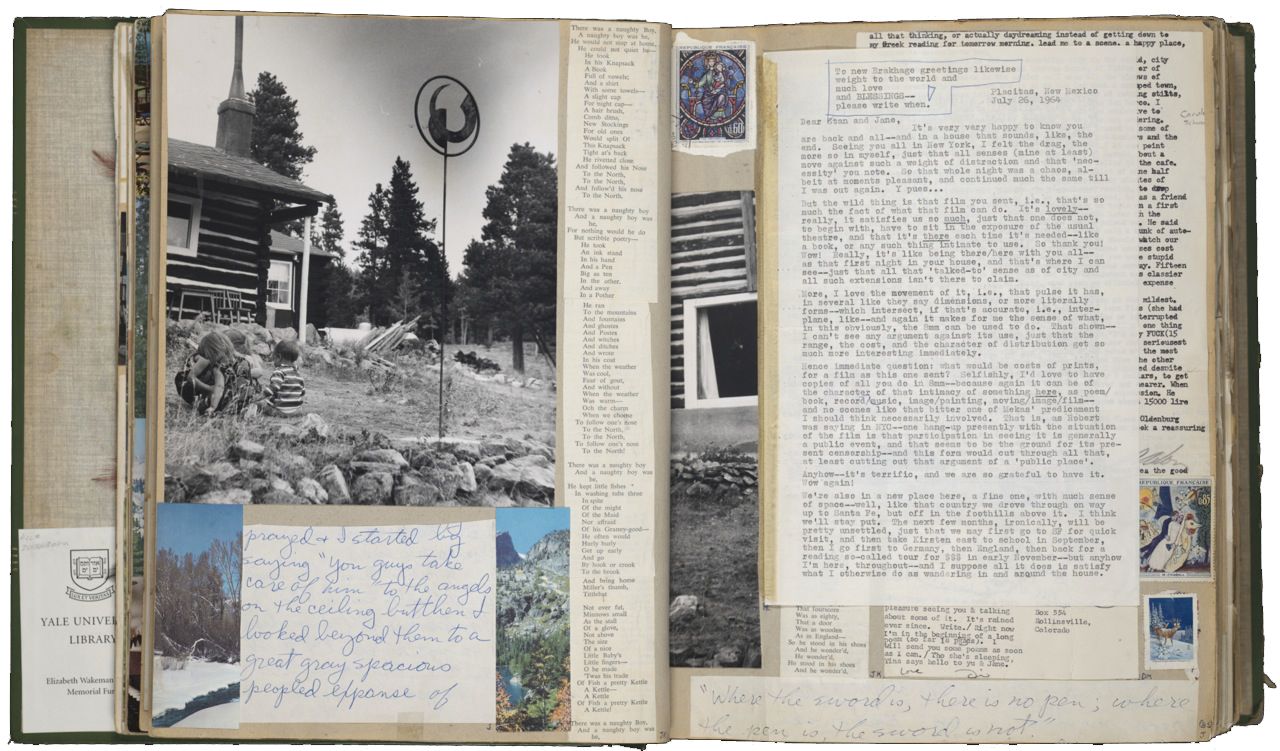 YALE UNIVER
LIBRARY
Elizabeth Wakeman
Memorial Fun
prayed & I started by
saying "you guys take
care of him" to the angels
on the ceiling but then I
looked beyond them to a
great gray spacious
peopled expanse of
There was a naughty Boy,
A naughty boy was he,
He would not stop at home,
He could not quiet be—
He took
In his Knapsack
A Book
Full of vowels;
And a shirt
With some towels—
A slight cap
For night cap—
A hair brush,
Comb ditto,
New Stockings
For old ones
Would split O!
This Knapsack
Tight at's back
He rivetted close
And followed his Nose
To the North,
To the North,
And follow'd his nose
To the North.
There was a naughty boy
And a naughty boy was
he,
For nothing would he do
But scribble poetry—
He took
An ink stand
In his hand
And a Pen
Big as ten
In the other,
And away
In a Pother
He ran
To the mountains
And fountains
And ghostes
And Postes
And witches
And ditches
And wrote
In his coat
When the weather
Was cool,
Fear of gout,
And without
When the weather
Was warm—
Och the charm
When we choose
To follow one's nose
To the North,
To the North,
To follow one's nose
To the North!
There was a naughty boy
And a naughty boy was
he,
He kept little fishes
In washing tubs three
In spite
Of the might
Of the Maid
Nor afraid
Of his Granny-good—
He often would
Hurly burly
Get up early
And go
By hook or crook
To the brook
And bring home
Miller's thumb,
Tittlebat
Not over fat,
Minnows small
As the stall
Of a glove,
Not above
The size
Of a nice
Little Baby's
Little fingers—
O he made
'Twas his trade
Of Fish a pretty Kettle
A Kettle—
A Kettle
Of Fish a pretty Kettle
A Kettle!
There was a naughty Boy,
And a naughty boy was
he,
RÉPUBLIQUE FRANÇAISE
0,60
all that thinking, or actually daydreaming instead of getting down to
my Greek reading for tomorrow morning, lead me to a scene, a happy place,
To new Brakhage greetings likewise
weight to the world and
much love
and BLESSINGS--
please write when.
Placitas, New Mexico
July 26, 1964
Dear Stan and Jane,
It's very very happy to know you
are back and all--and in a house that sounds, like, the
end. Seeing you all in New York, I felt the drag, the
more so in myself, just that all senses (mine at least)
move against such a weight of distraction and that 'nec-
essity' you note. So that whole night was a chaos, al-
beit at moments pleasant, and continued much the same till
I was out again. Y pues...
But the wild thing is that film you sent, i.e., that's so
much the fact of what film can do. It's lovely--
really, it satisfies us so much, just that one does not,
to begin with, have to sit in the exposure of the usual
theatre, and that it's there each time it's needed--like
a book, or any such thing intimate to use. So thank you!
Wow! Really, it's like being there/here with you all--
as that first night in your house, and that's where I can
see--just that all that 'talked-to' sense as of city and
all such extensions isn't there to claim.
More, I love the movement of it, i.e., that pulse it has,
in several like they say dimensions, or more literally
forms--which intersect, if that's accurate, i.e., inter-
plane, like--and again it makes for me the sense of what,
in this obviously, the 8mm can be used to do. That shown--
I can't see any argument against its use, just that the
range, the cost, and the character of distribution get so
much more interesting immediately.
Hence immediate question: what would be costs of prints,
for a film as this one sent? Selfishly, I'd love to have
copies of all you do in 8mm--because again it can be of
the character of that intimacy of something here, as poem/
book, record/music, image/painting, moving/image/film--
and no scenes like that bitter one of Mekas' predicament
I should think necessarily involved. That is, as Robert
was saying in NYC--one hang-up presently with the situation
of the film is that participation in seeing it is generally
a public event, and that seems to be the ground for its pre-
sent censorship--and this form would cut through all that,
at least cutting out that argument of a 'public place'.
Anyhow--it's terrific, and we are so grateful to have it.
Wow again!
We're also in a new place here, a fine one, with much sense
of space--well, like that country we drove through on way
up to Santa Fe, but off in the foothills above it. I think
we'll stay put. The next few months, ironically, will be
pretty unsettled, just that we may first go to BW for quick
visit, and then take Kirsten east to school in September,
then I go first to Germany, then England, then back for a
reading so-called tour for $$$ in early November--but anyhow
I'm here, throughout--and I suppose all it does is satisfy
what I otherwise do as wandering in and around the house.
d, city
er of
ws of
ped town,
ng stilts,
ce. I
ve to
ering.
some of
rs and the
point
bout a
the cafe.
ne half
tes of
te
as a friend
n a first
n the
. He said
unk of auto-
watch our
ses cost
e stupid
ay. Fifteen
s classier
expense
mildest.
s (she had
terrupted
one thing
y FUCK(15
seriousest
the most
he other
ed despite
ars, to get
nearer. When
usion. He
15000 lire
Oldenburg
ek a reassuring
ea the good
RÉPUBLIQUE FRANÇAISE
0,85
That fourscore
Was as eighty,
That a door
Was as wooden
As in England—
So he stood in his shoes
And he wonder'd,
He wonder'd,
He stood in his shoes
And he wonder'd.
pleasure seeing you & talking
about some of it. It's rained
ever since. Write./ Right now
I'm in the beginning of a long
poem (so far 12 pages). I
will send you some poems as soon
as I can./ Tho she's sleeping,
Tina says hello to you & Jane.
Love
JK
Box 554
Rollinsville,
Colorado
DM
"Where the sword is, there is no pen; where
the pen is, the sword is not."